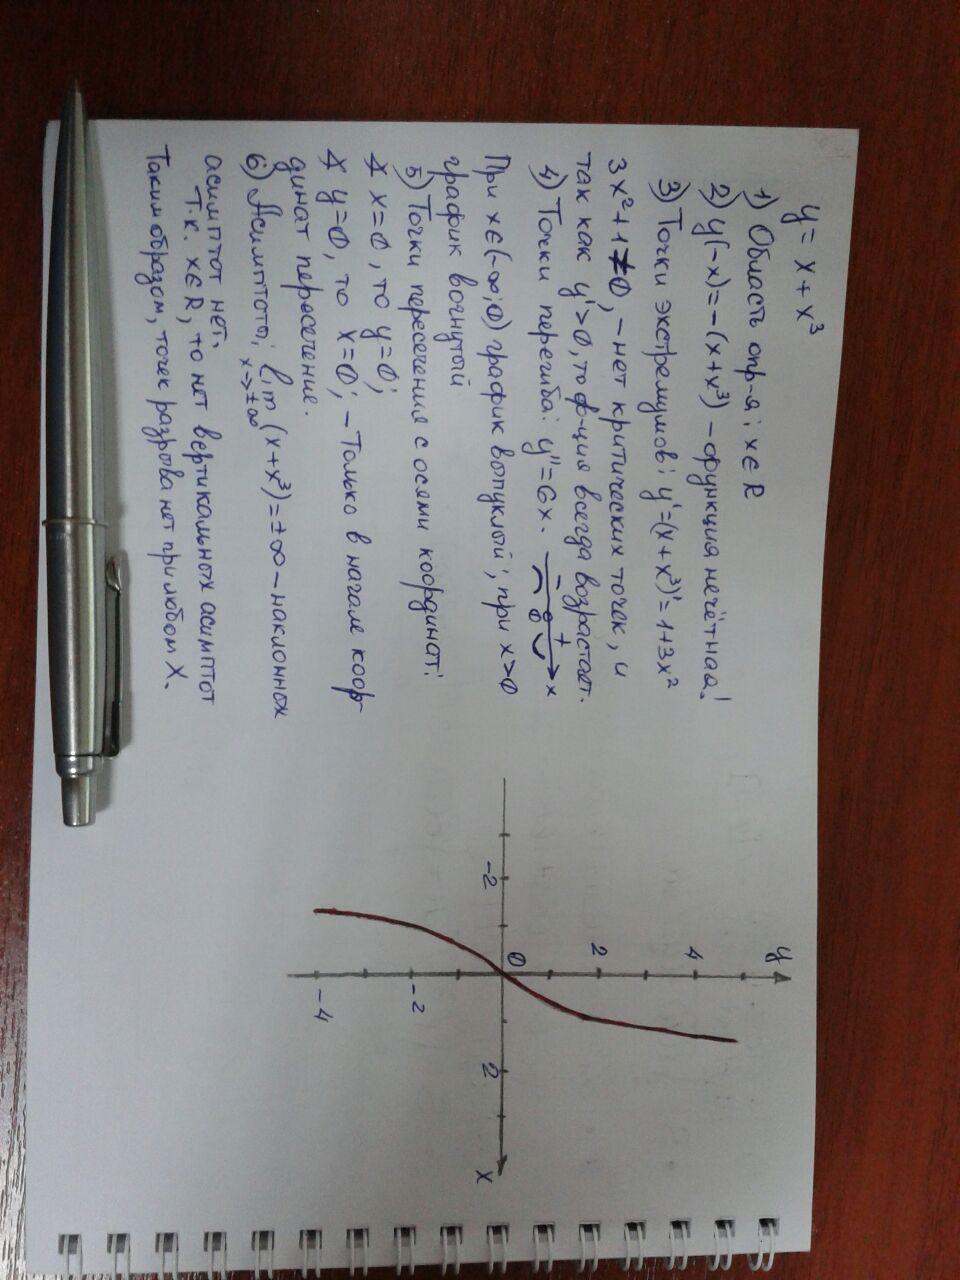 y = x + x³
1) Область опр-я: x ∈ R
2) y(-x) = -(x+x³) - функция нечётная!
3) Точки экстремумов: y' = (x + x³)' = 1+3x²
3x²+1 ≠ 0, - нет критических точек, и
так как y' > 0, то ф-ция всегда возрастает.
4) Точки перегиба: y'' = 6x. - 0 + x
При x∈(-∞; 0) график выпуклый; при x>0
график вогнутый
5) Точки пересечения с осями координат:
x = 0, то y = 0;
y = 0, то x = 0; - Только в начале коор-
динат пересечение.
6) Асимптоты: lim (x+x³) = ±∞ - наклонных
x→±∞
асимптот нет.
Т.к. x∈R, то нет вертикальных асимптот
Таким образом, точек разрыва нет при любом x.
y
4
2
-2
0
2
x
-2
-4